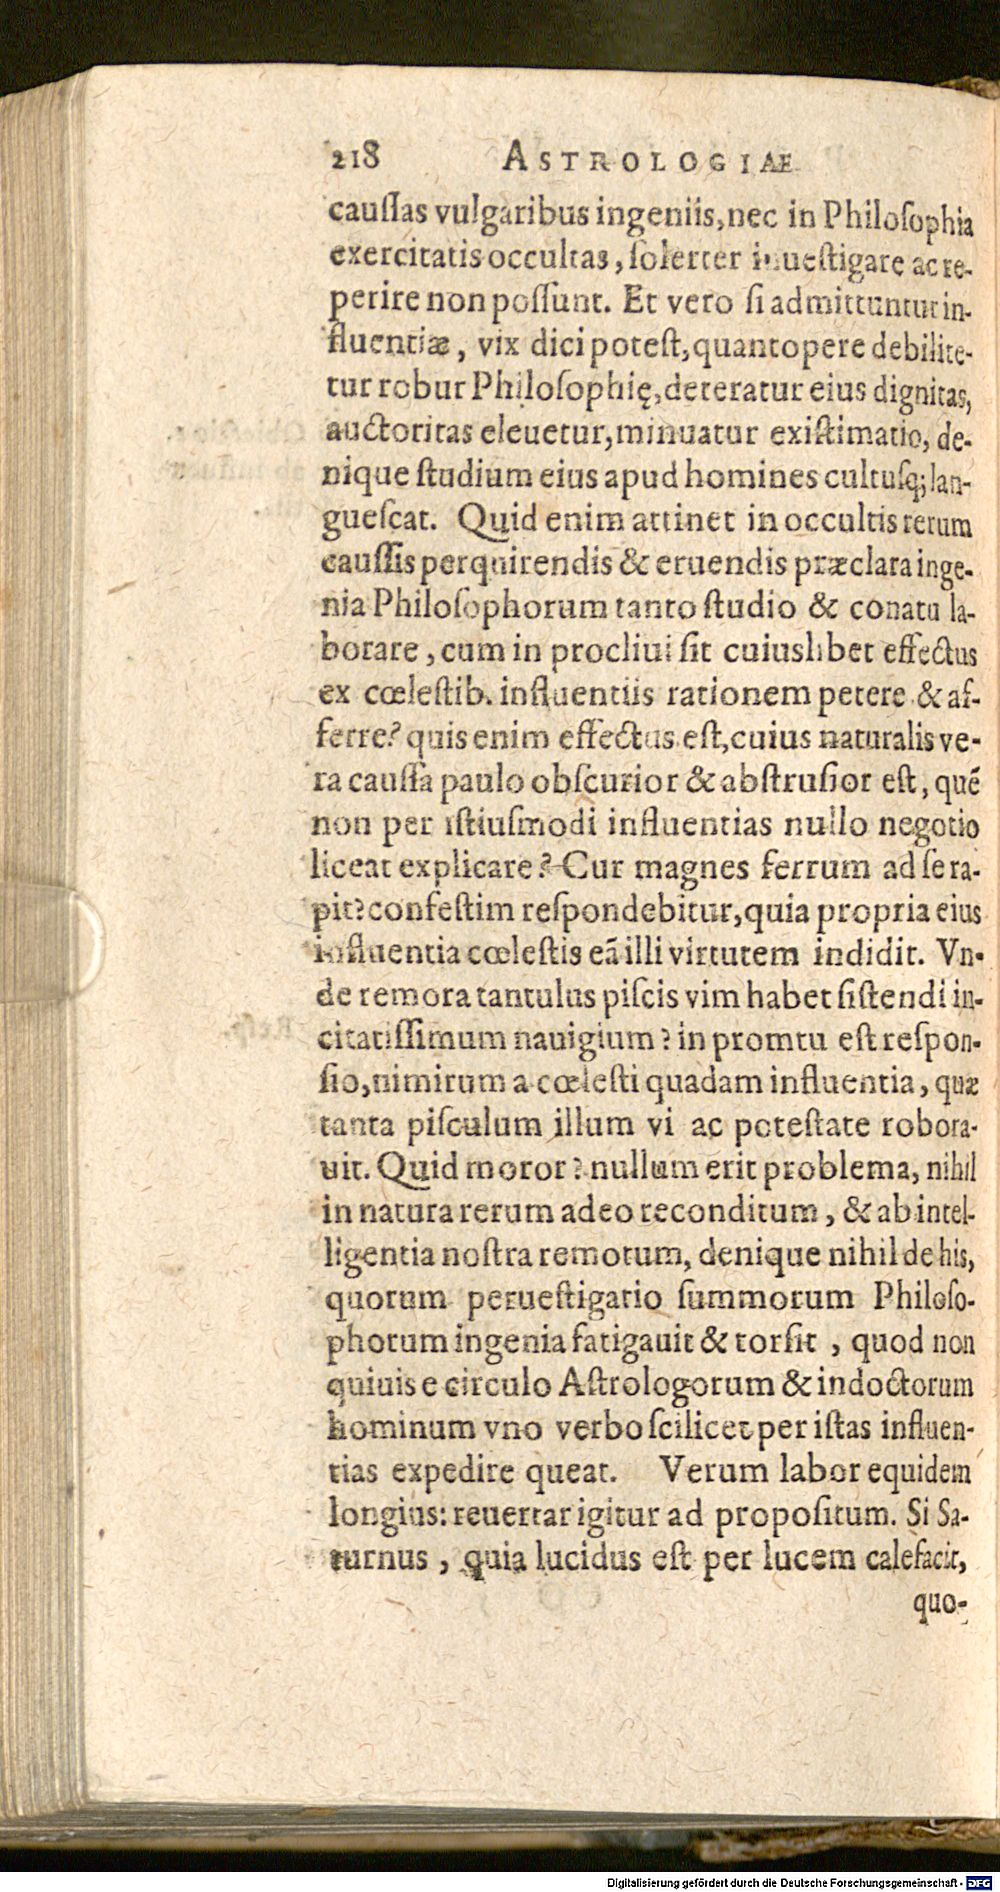 218 ASTROLOGIAE
cauſſas vulgaribus ingeniis, nec in Philoſophia
exercitatis occultas, ſolerter inueſtigare ac re-
perire non poſſunt. Et vero ſi admittuntur in-
fluentiæ, vix dici poteſt, quantopere debilite-
tur robur Philoſophię, deteratur eius dignitas,
auctoritas eleuetur, minuatur exiſtimatio, de-
nique ſtudium eius apud homines cultuſq; lan-
gueſcat. Quid enim attinet in occultis rerum
cauſſis perquirendis & eruendis præclara inge-
nia Philoſophorum tanto ſtudio & conatu la-
borare, cum in procliui ſit cuiuslibet effectus
ex cœleſtib. influentiis rationem petere & af-
ferre? quis enim effectus eſt, cuius naturalis ve-
ra cauſſa paulo obſcurior & abſtruſior eſt, quē
non per iſtiuſmodi influentias nullo negotio
liceat explicare? Cur magnes ferrum ad ſe ra-
pit? confeſtim reſpondebitur, quia propria eius
influentia cœleſtis eā illi virtutem indidit. Vn-
de remora tantulus piſcis vim habet ſiſtendi in-
citatiſſimum nauigium? in promtu eſt reſpon-
ſio, nimirum a cœleſti quadam influentia, quæ
tanta piſculum illum vi ac poteſtate robora-
uit. Quid moror? nullum erit problema, nihil
in natura rerum adeo reconditum, & ab intel-
ligentia noſtra remotum, denique nihil de his,
quorum perueſtigatio ſummorum Philoſo-
phorum ingenia fatigauit & torſit, quod non
quiuis e circulo Aſtrologorum & indoctorum
hominum vno verbo ſcilicet per iſtas influen-
tias expedire queat. Verum labor equidem
longius: reuertar igitur ad propoſitum. Si Sa-
turnus, quia lucidus eſt per lucem calefacit,
quo-
Digitalisierung gefördert durch die Deutsche Forschungsgemeinschaft - DFG